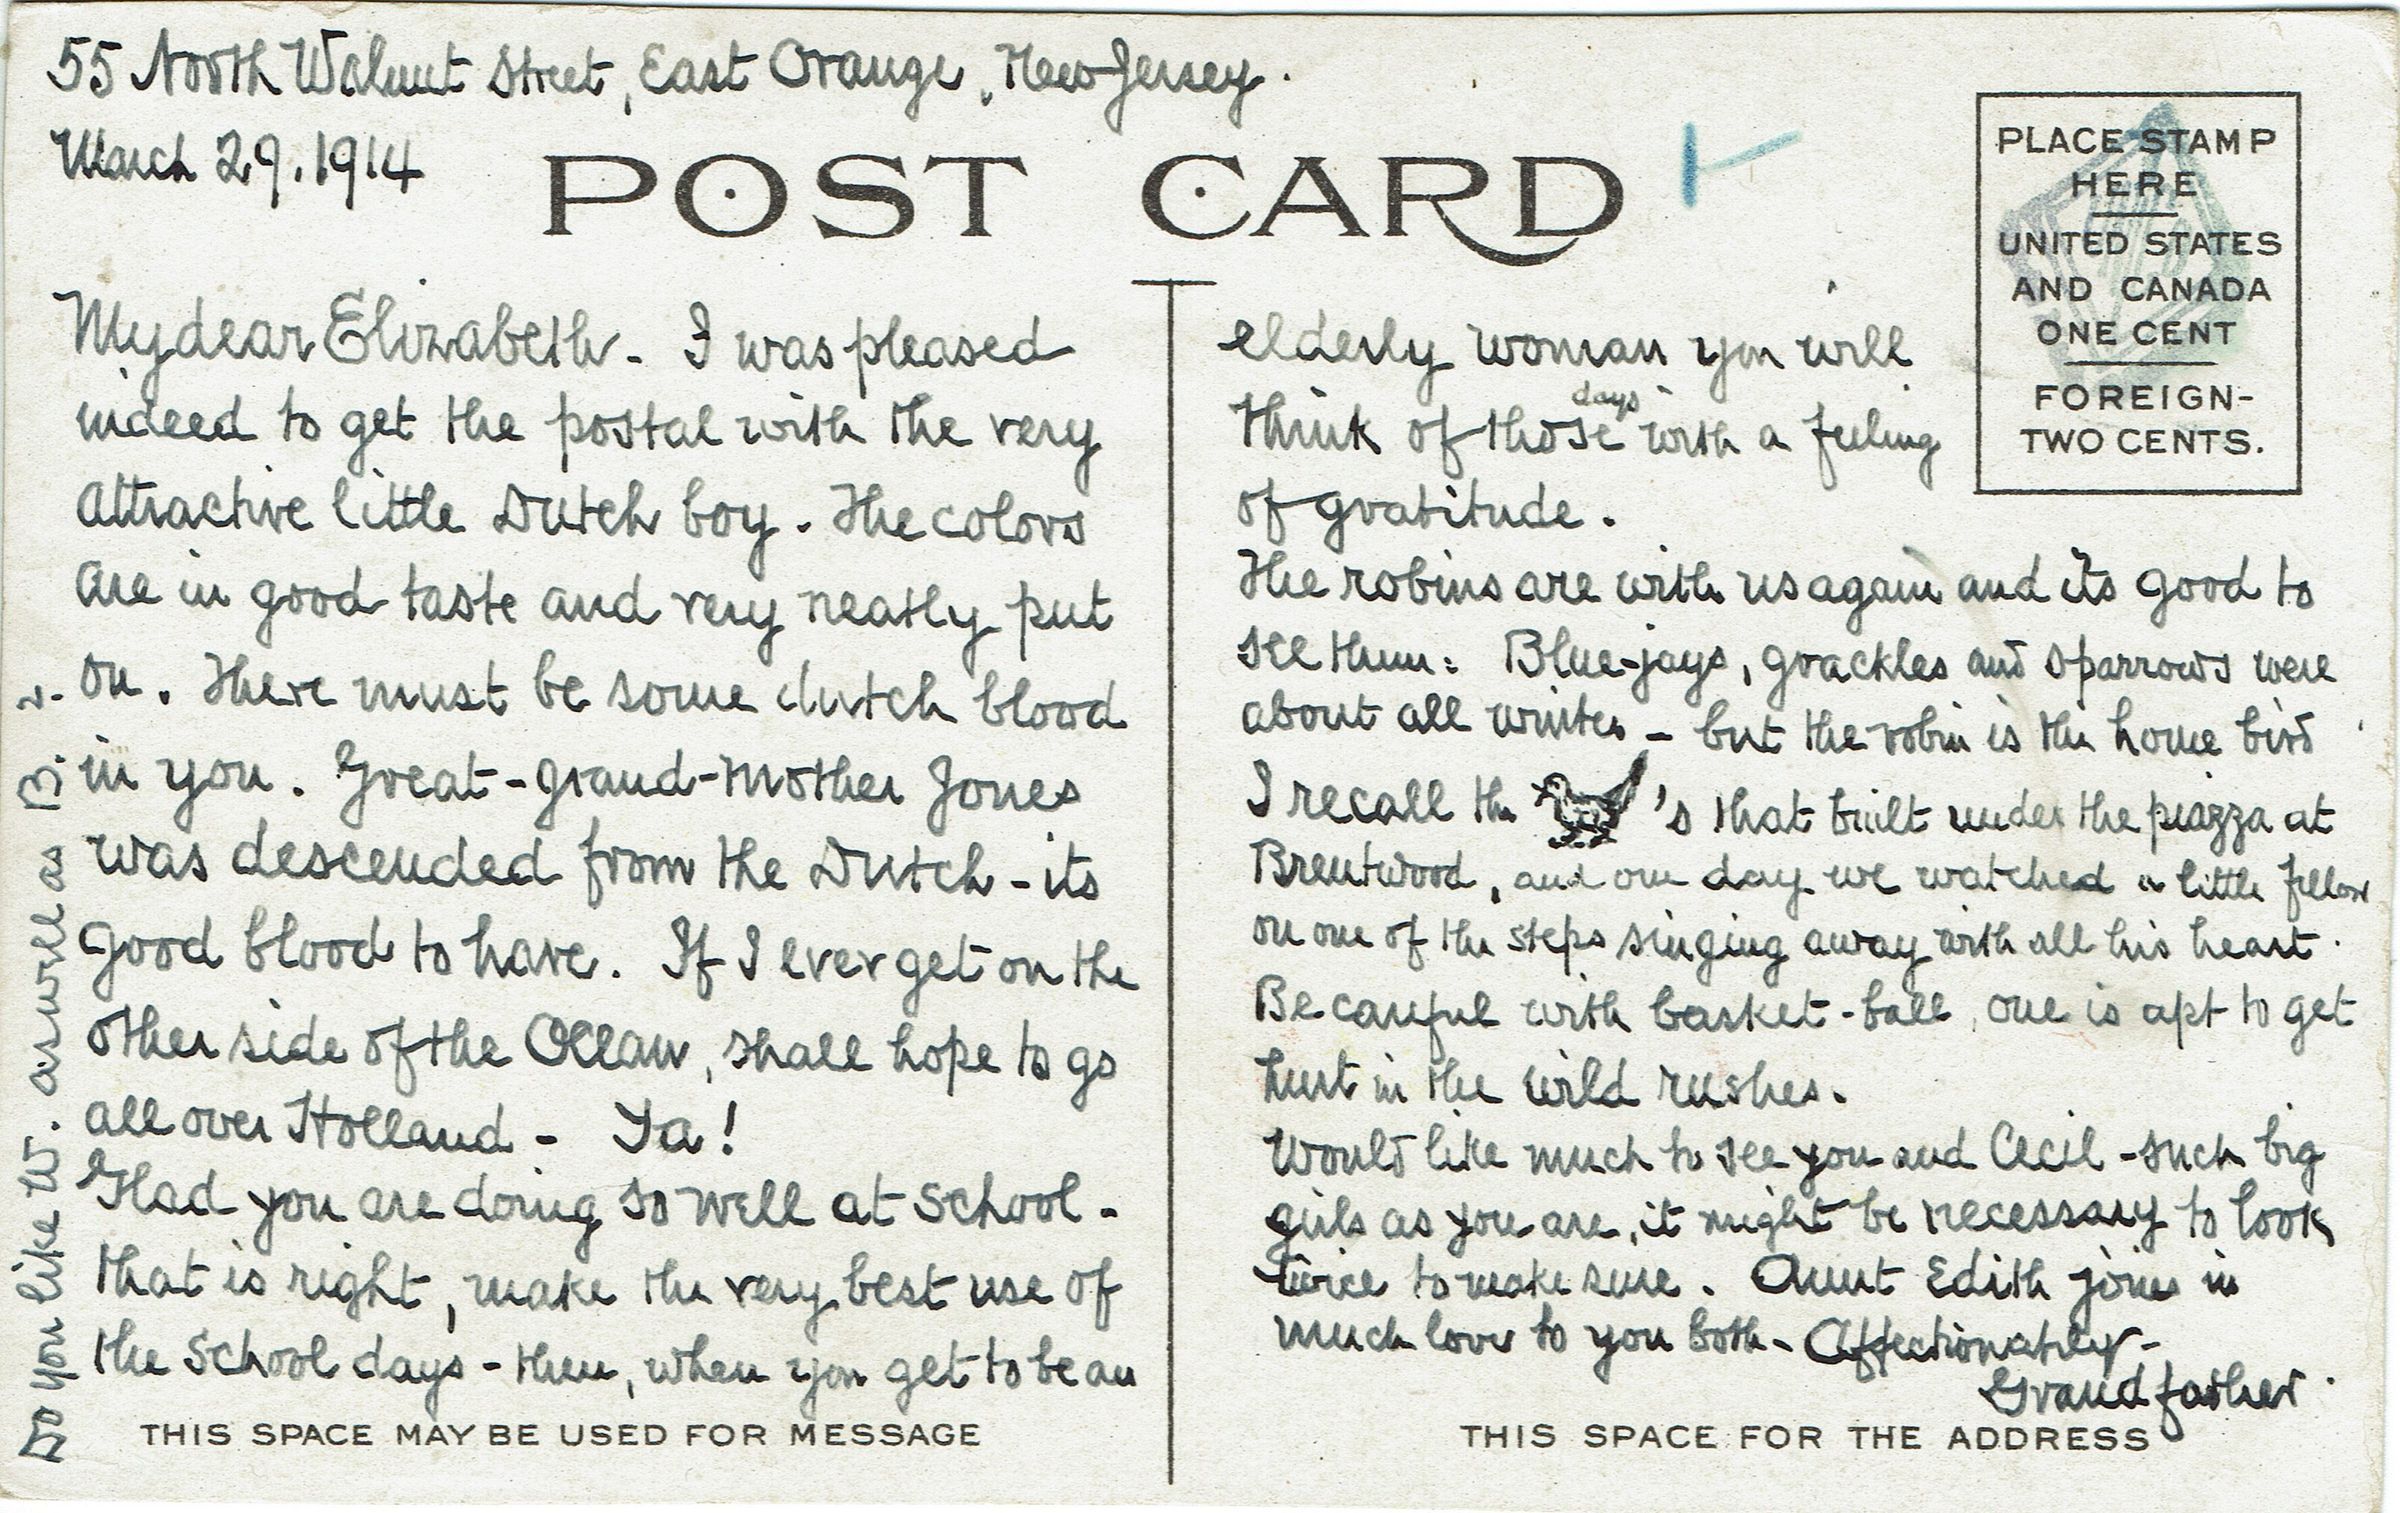 55 North Walnut Street, East Orange, New Jersey.
March 29. 1914
POST CARD
PLACE STAMP
HERE
UNITED STATES
AND CANADA
ONE CENT
FOREIGN-
TWO CENTS.
My dear Elizabeth - I was pleased
indeed to get the postal with the very
attractive little Dutch boy. The colors
are in good taste and very neatly put
on. There must be some dutch blood
in you. Great-grand-mother Jones
was descended from the Dutch - its
good blood to have. If I ever get on the
other side of the Ocean, shall hope to go
all over Holland - Ya!
Glad you are doing so well at school -
that is right, make the very best use of
the school days - then, when you get to be an
THIS SPACE MAY BE USED FOR MESSAGE
elderly woman you will
think of those days with a feeling
of gratitude.
The robins are with us again and its good to
see them: Blue-jays, grackles and sparrows were
about all winter - but the robin is the home bird
I recall the 's that built under the piazza at
Brentwood, and one day we watched a little fellow
on one of the steps singing away with all his heart.
Be careful with basket-ball, one is apt to get
hurt in the wild rushes.
Would like much to see you and Cecil - such big
girls as you are, it might be necessary to look
twice to make sure. Aunt Edith joins in
much love to you both - Affectionately -
Grandfather.
THIS SPACE FOR THE ADDRESS
Do you like W. as well as B. ?